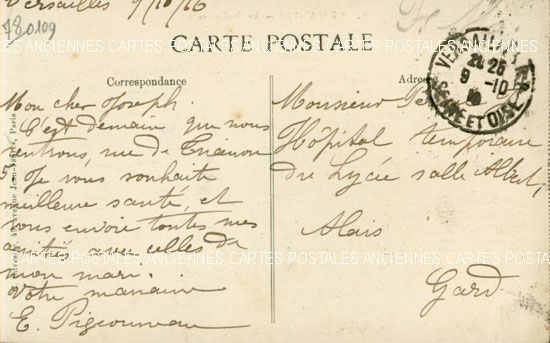 Versailles 9/10/16
780109
CARTE POSTALE
Correspondance
Adresse
VERSAILLES
24 25
9 - 10
SEINE ET OISE
Mon cher Joseph.
C'est demain que nous
rentrons, rue de Trianon
5. Je vous souhaite
meilleure santé, et
vous envoie toutes mes
amitiés avec celles de
mon mari.
Votre marraine
E. Pigeonneau
Monsieur
Hôpital temporaire
du Lycée salle Albert,
Alais
Gard
CARTES POSTALES ANCIENNES CARTES POSTALES ANCIENNES CARTES POSTALES ANCIENNES